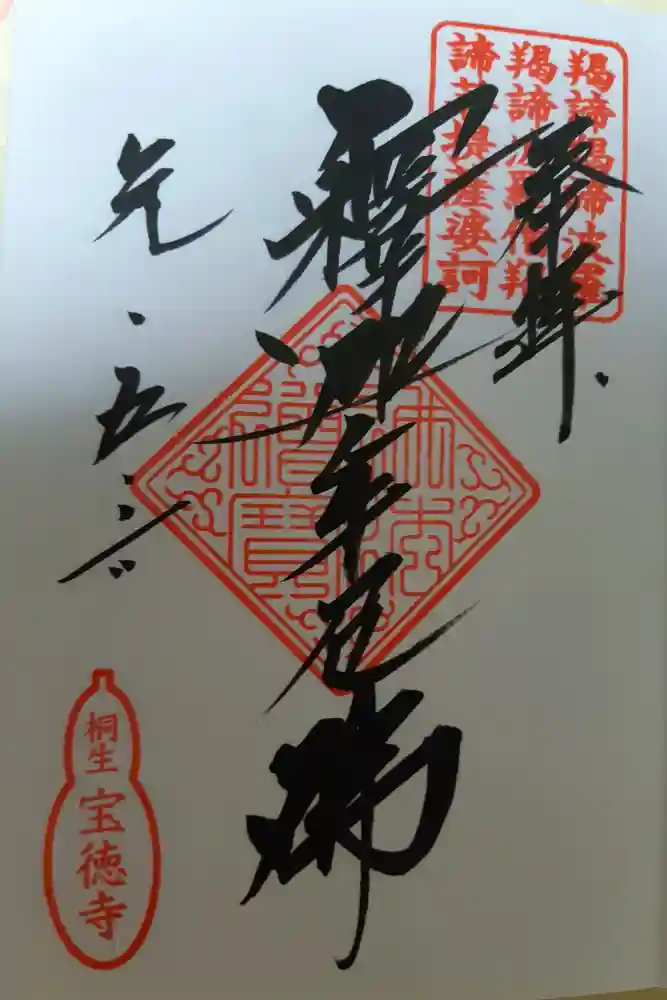 羯諦羯諦波羅
羯諦波羅僧羯
諦菩提薩婆訶
奉拝
佛法
僧寶
釋迦牟尼佛
元・五・六
桐生
宝徳寺